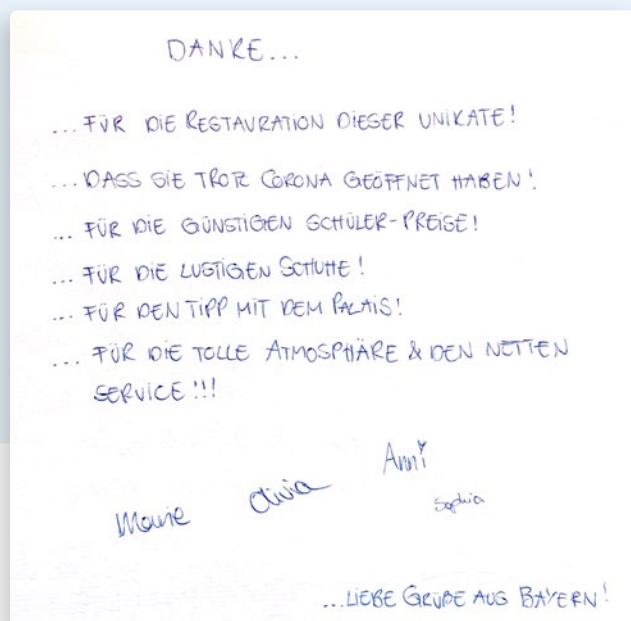 DANKE...
...FÜR DIE RESTAURATION DIESER UNIKATE!
...DASS SIE TROTZ CORONA GEÖFFNET HABEN!
... FÜR DIE GÜNSTIGEN SCHÜLER-PREISE!
... FÜR DIE LUSTIGEN SCHUHE!
... FÜR DEN TIPP MIT DEM PALAIS!
... FÜR DIE TOLLE ATMOSPHÄRE & DEN NETTEN
SERVICE!!!
Anni
Marie Olivia
Sophia
...LIEBE GRÜßE AUS BAYERN!